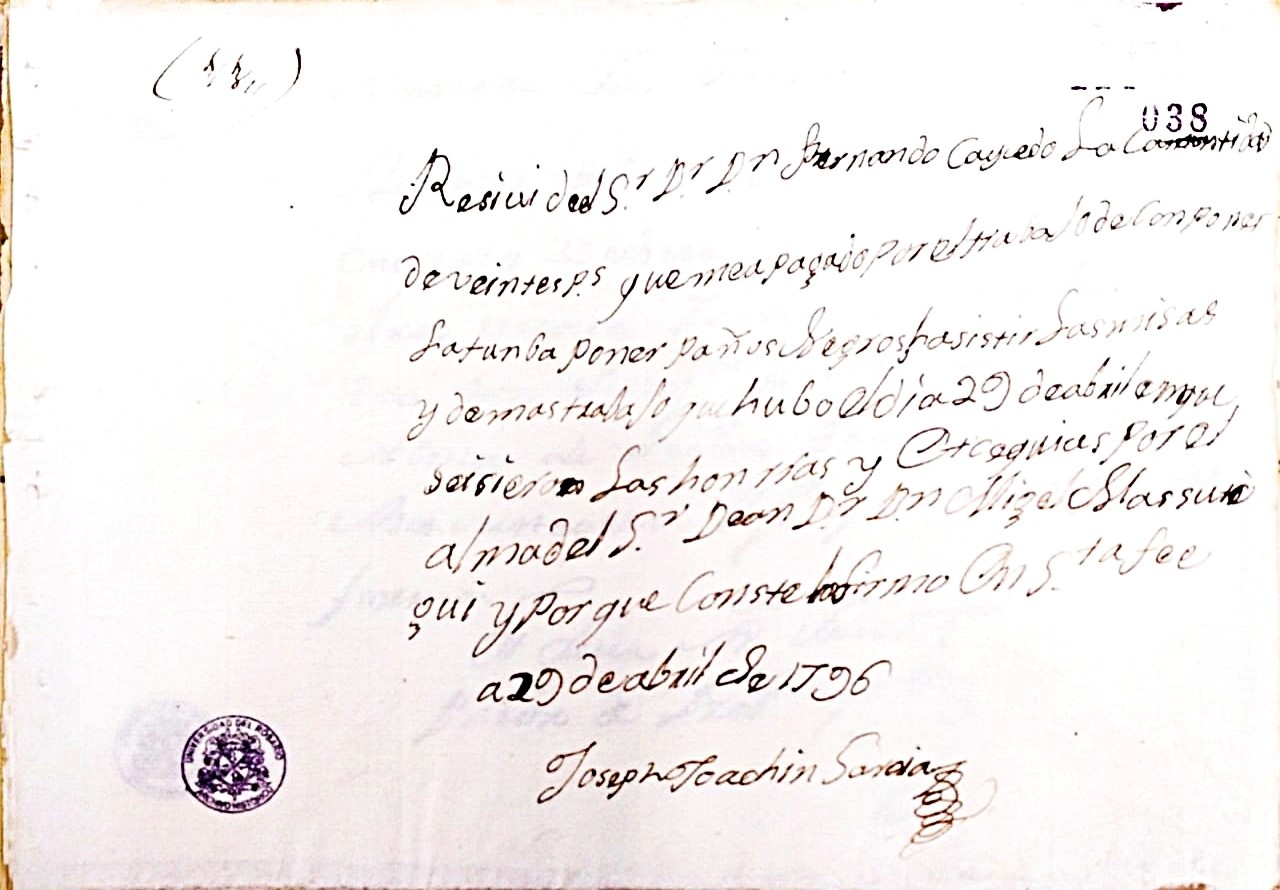 038
Resiui del S.r D.r D.n Fernando Caycedo La Cantidad
de veintes p.s que me a pagado por el trabajo de Conponer
La tunba poner paños Negros hasistir Las misas
y demas trabajo que hubo el dia 29 de abril en que
se isieron Las honrras y Excequias por el
alma del S.r Dean D.r D.n Migel Massuste
gui y porque Conste lo firmo En S.ta fee
a 29 de abril de 1796
Joseph Joachin Garcia
UNIVERSIDAD DEL ROSARIO
ARCHIVO HISTORICO